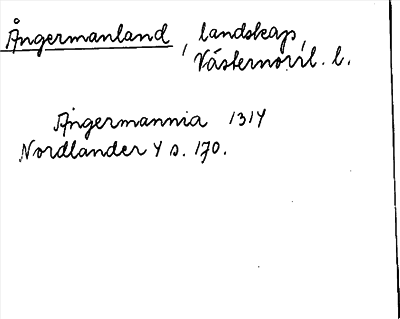 Ångermanland, landskap,
Västernorrl. l.
Ångermannia 1314
Nordlander 4 s. 170.